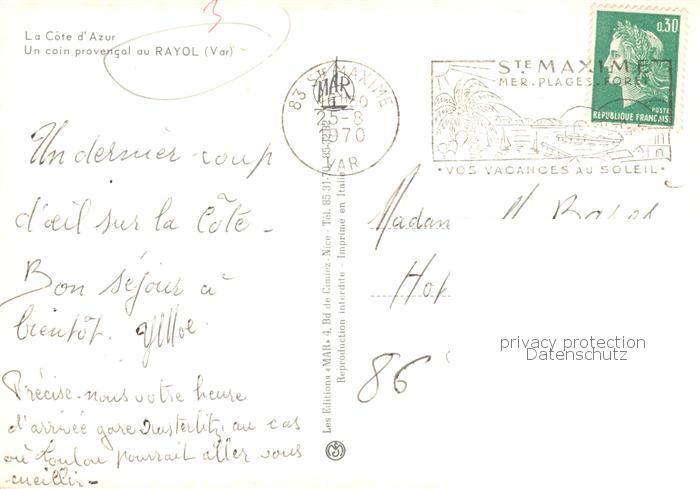 La Côte d'Azur
Un coin provençal au RAYOL (Var)
3
83 STE MAXIME
MAR
25-8
1970
VAR
STE MAXIME
MER. PLAGES. FORÊT
VOS VACANCES AU SOLEIL
0,30
POSTES
REPUBLIQUE FRANCAISE
Un dernier coup
d'œil sur la Côte -
Bon séjour à
bientôt.
Précisez-nous votre heure
d'arrivée gare Austerlitz au cas
où Loulou pourrait aller vous
cueillir -
Les Editions «MAR» 4, Bd de Cimiez-Nice - Tél. 85
Reproduction interdite - Imprimé en Italie
Madam
Hop
86
privacy protection
Datenschutz